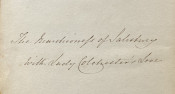 The Marchioness of Salisbury
With Lady Colchester's Love